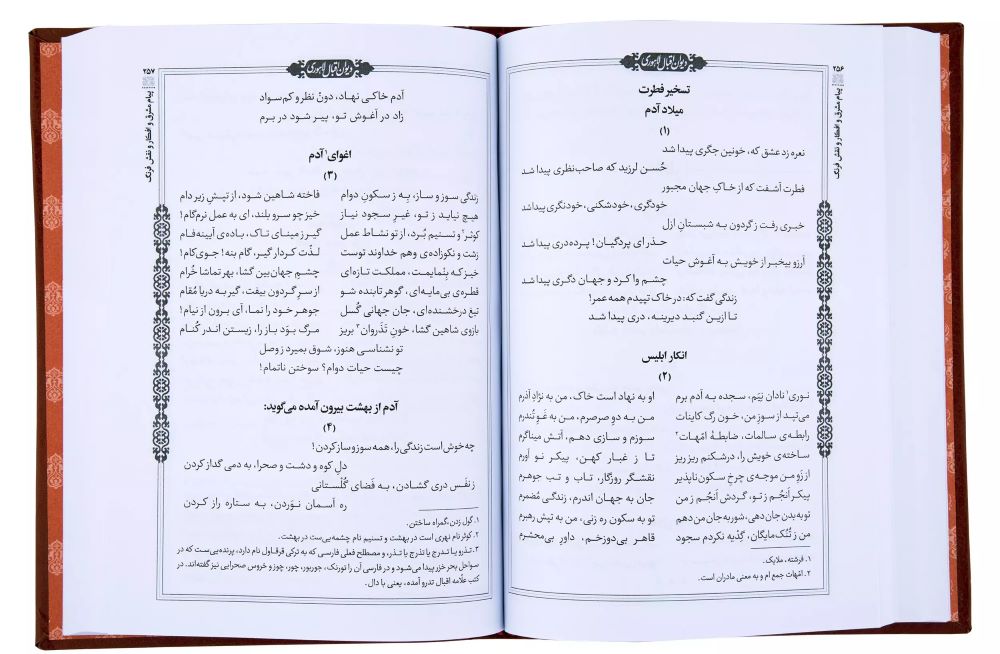 دیوان اقبال لاهوری
۲۵۶
پیام مشرق و افکار و نقش فرنگ
تسخیر فطرت
میلاد آدم
(۱)
نعره زد عشق که، خونین جگری پیدا شد
حُسن لرزید که صاحب‌نظری پیدا شد
فطرت آشفت که از خاکِ جهانِ مجبور
خودگری، خودشکنی، خودنگری پیدا شد
خبری رفت ز گردون به شبستانِ ازل
حذر ای پردگیان! پرده‌دری پیدا شد
آرزو بیخبر از خویش به آغوش حیات
چشم وا کرد و جهان دگری پیدا شد
زندگی گفت که: در خاک تپیدم همه عمر!
تا ازین گنبد دیرینه، دری پیدا شد
انکار ابلیس
(۲)
نوری۱ نادان نیَم، سجده به آدم برم او به نهاد است خاک، من به نژادِ آذرم
می‌تپد از سوزِ من، خون رگ کاینات من به دوِ صرصرم، من به غَوِ تُندرم
رابطه‌ی سالمات، ضابطهٔ امّهات۲ سوزم و سازی دهم، آتش میناگرم
ساخته‌ی خویش را، درشکنم ریز ریز تا ز غبار کهن، پیکر نو آورم
از زَوِ من موجه‌ی چرخِ سکون‌ناپذیر نقشگر روزگار، تاب و تب جوهرم
پیکر اَنجُم ز تو، گردش اَنجُم ز من جان به جهان اندرم، زندگی مُضمرم
تو به بدن جان دهی، شور به جان من دهم تو به سکون ره زنی، من به تپش رهبرم
من ز تُنُک‌مایگان، گدْیه نکردم سجود قاهر بی‌دوزخم، داورِ بی‌محشرم
۱. فرشته، ملایک.
۲. امّهات جمع ام و به معنی مادران است.
دیوان اقبال لاهوری
۲۵۷
پیام مشرق و افکار و نقش فرنگ
آدم خاکی نهاد، دونْ نظر و کم‌سواد
زاد در آغوش تو، پیر شود در برم
اغوای۱ آدم
(۳)
زندگی سوز و ساز، به ز سکونِ دوام فاخته شاهین شود، از تپشِ زیر دام
هیچ نیاید ز تو، غیرِ سجود نیاز خیز چو سرو بلند، ای به عمل نرم‌گام!
کوثر۲ و تسنیم بُرد، از تو نشاط عمل گیر ز مینای تاک، باده‌ی آیینه‌فام
زشت و نکوزاده‌ی وهم خداوند توست لذّت کردار گیر، گام بنه! جوی کام!
خیز که بِنُمایمت، مملکت تازه‌ای چشمِ جهان‌بین گشا، بهر تماشا خُرام
قطره‌ی بی‌مایه‌ای، گوهر تابنده شو از سرِ گردون بیفت، گیر به دریا مُقام
تیغ درخشنده‌ای، جان جهانی گُسل جوهر خود را نما، آی برون از نیام!
بازوی شاهین گشا، خونِ تَذَروان۳ بریز مرگ بوَد باز را، زیستن اندر کُنام
تو نشناسی هنوز، شوق بمیرد ز وصل
چیست حیات دوام؟ سوختن ناتمام!
آدم از بهشت بیرون آمده می‌گوید:
(۴)
چه خوش است زندگی را، همه سوز و ساز کردن!
دلِ کوه و دشت و صحرا، به دمی گداز کردن
ز نفَس دری گشادن، به فَضای گُلستانی
ره آسمان نوَردن، به ستاره راز کردن
۱. گول زدن، گمراه ساختن.
۲. کوثر نام نهری است در بهشت و تسنیم نام چشمه‌یی‌ست در بهشت.
۳. تذرو یا تدرج یا تذرج یا تذر، و مصطلح فعلی فارسی که به ترکی قرقاول نام دارد، پرنده‌یی‌ست که در
سواحل بحر خزر پیدا می‌شود و در فارسی آن را تورنگ، جوربور، چور، چوز و خروس صحرایی نیز گفته‌اند. در
کتب علّامه اقبال تدرو آمده، یعنی با دال.